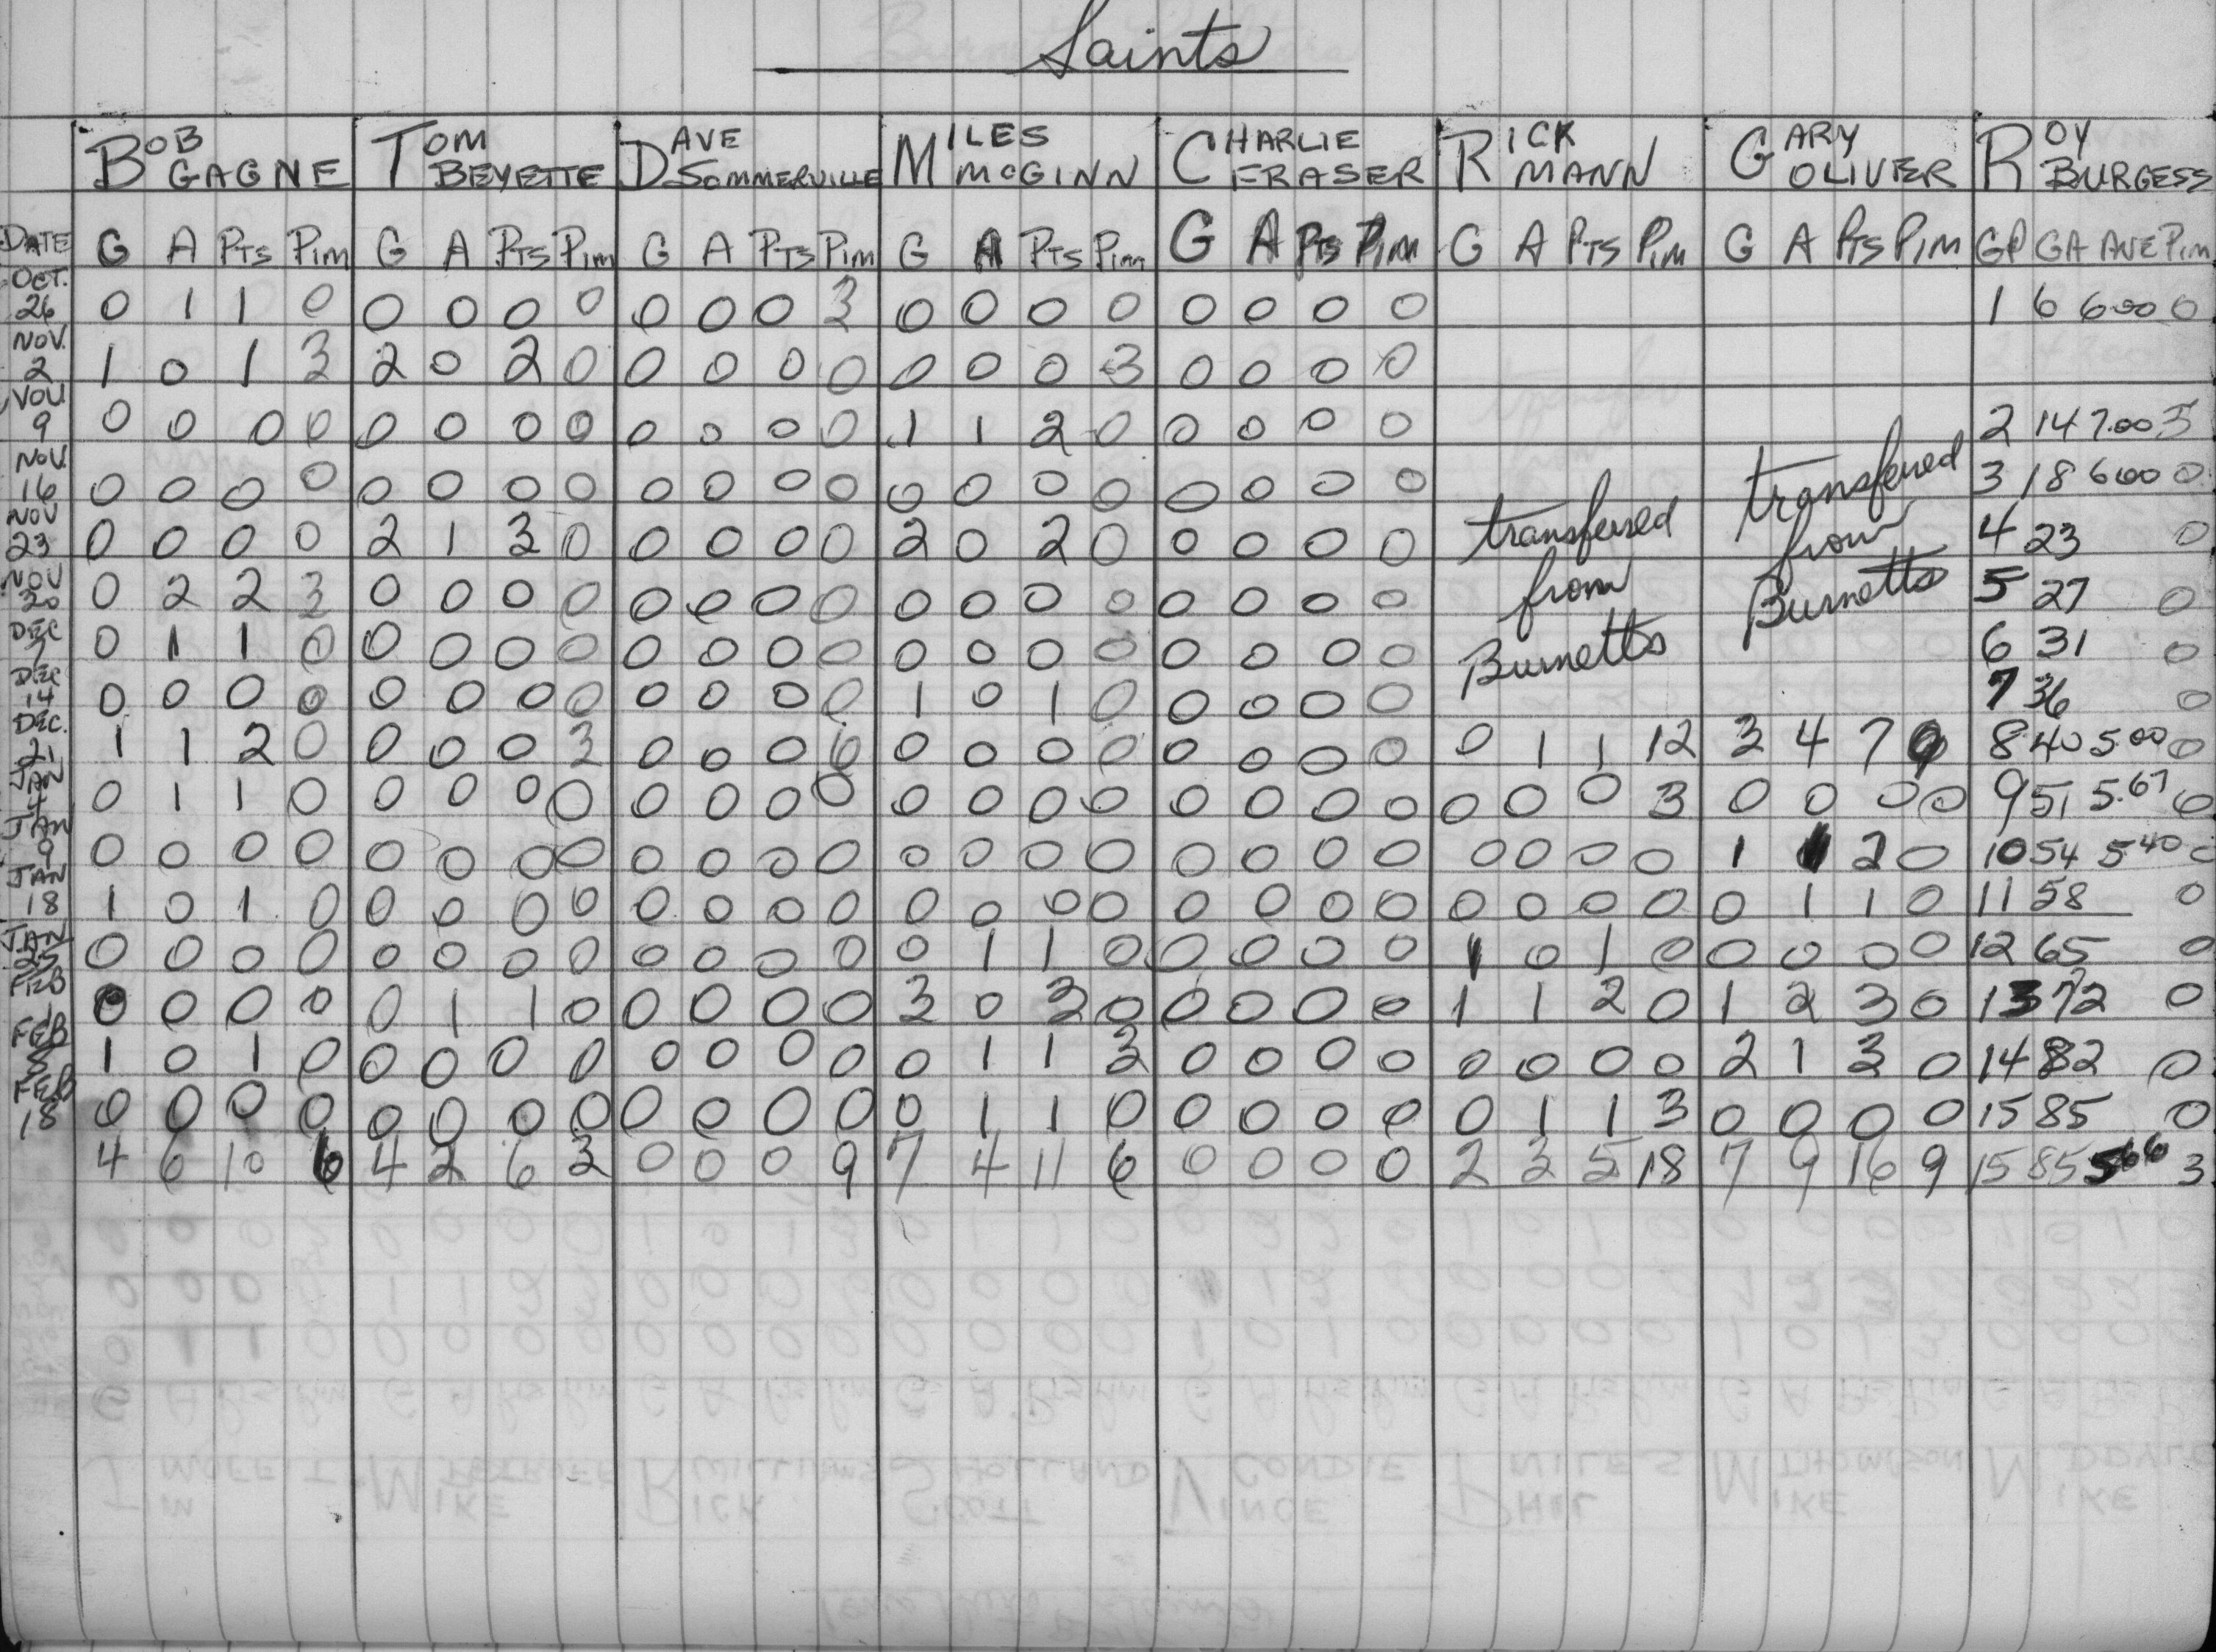 Saints
BOB GAGNE TOM BEYETTE DAVE SOMMERVILLE MILES McGINN CHARLIE FRASER RICK MANN GARY OLIVER ROY BURGESS
DATE G A PTS PIM G A PTS PIM G A PTS PIM G A PTS PIM G A PTS PIM G A PTS PIM G A PTS PIM GP GA AVE PIM
OCT. 26 0 1 1 0 0 0 0 0 0 0 0 3 0 0 0 0 0 0 0 0 1 6 6.00 0
NOV. 2 1 0 1 3 2 0 2 0 0 0 0 0 0 0 0 3 0 0 0 0
NOV 9 0 0 0 0 0 0 0 0 0 0 0 0 1 1 2 0 0 0 0 0 2 14 7.00 3
NOV. 16 0 0 0 0 0 0 0 0 0 0 0 0 0 0 0 0 0 0 0 0 3 18 6.00 0
NOV 23 0 0 0 0 2 1 3 0 0 0 0 0 2 0 2 0 0 0 0 0 transferred from Burnetts transferred from Burnetts 4 23 0
NOV 30 0 2 2 3 0 0 0 0 0 0 0 0 0 0 0 0 0 0 0 0 5 27 0
DEC 7 0 1 1 0 0 0 0 0 0 0 0 0 0 0 0 0 0 0 0 0 6 31 0
DEC 14 0 0 0 0 0 0 0 0 0 0 0 0 1 0 1 0 0 0 0 0 7 36 0
DEC. 21 1 1 2 0 0 0 0 3 0 0 0 6 0 0 0 0 0 0 0 0 0 1 1 12 3 4 7 9 8 40 5.00 0
JAN 4 0 1 1 0 0 0 0 0 0 0 0 0 0 0 0 0 0 0 0 0 0 0 0 3 0 0 0 0 9 51 5.67 0
JAN 9 0 0 0 0 0 0 0 0 0 0 0 0 0 0 0 0 0 0 0 0 0 0 0 0 1 1 2 0 10 54 5.40 0
JAN 18 1 0 1 0 0 0 0 0 0 0 0 0 0 0 0 0 0 0 0 0 0 0 0 0 0 1 1 0 11 58 0
JAN 25 0 0 0 0 0 0 0 0 0 0 0 0 0 1 1 0 0 0 0 0 1 0 1 0 0 0 0 0 12 65 0
FEB 1 0 0 0 0 0 1 1 0 0 0 0 0 3 0 3 0 0 0 0 0 1 1 2 0 1 2 3 0 13 72 0
FEB 8 1 0 1 0 0 0 0 0 0 0 0 0 0 1 1 3 0 0 0 0 0 0 0 0 2 1 3 0 14 82 0
FEB 18 0 0 0 0 0 0 0 0 0 0 0 0 0 1 1 0 0 0 0 0 0 1 1 3 0 0 0 0 15 85 0
4 6 10 6 4 2 6 3 0 0 0 9 7 4 11 6 0 0 0 0 2 3 5 18 7 9 16 9 15 85 5.66 3